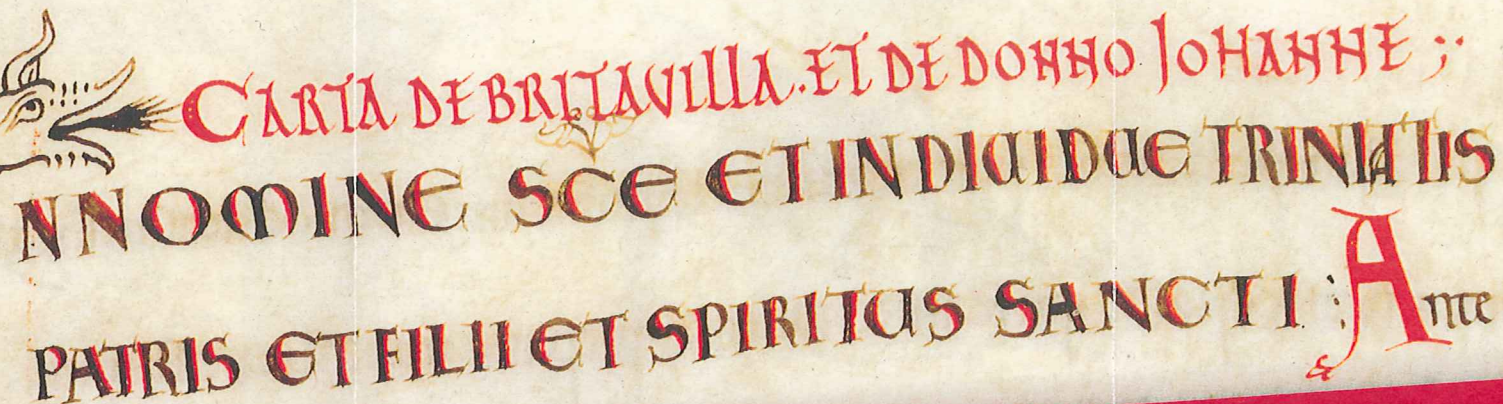 CARTA DE BRITAVILLA. ET DE DONNO JOHANNE ;·
N NOMINE SCE ET INDIVIDUE TRINITATIS
PATRIS ET FILII ET SPIRITUS SANCTI : Ante